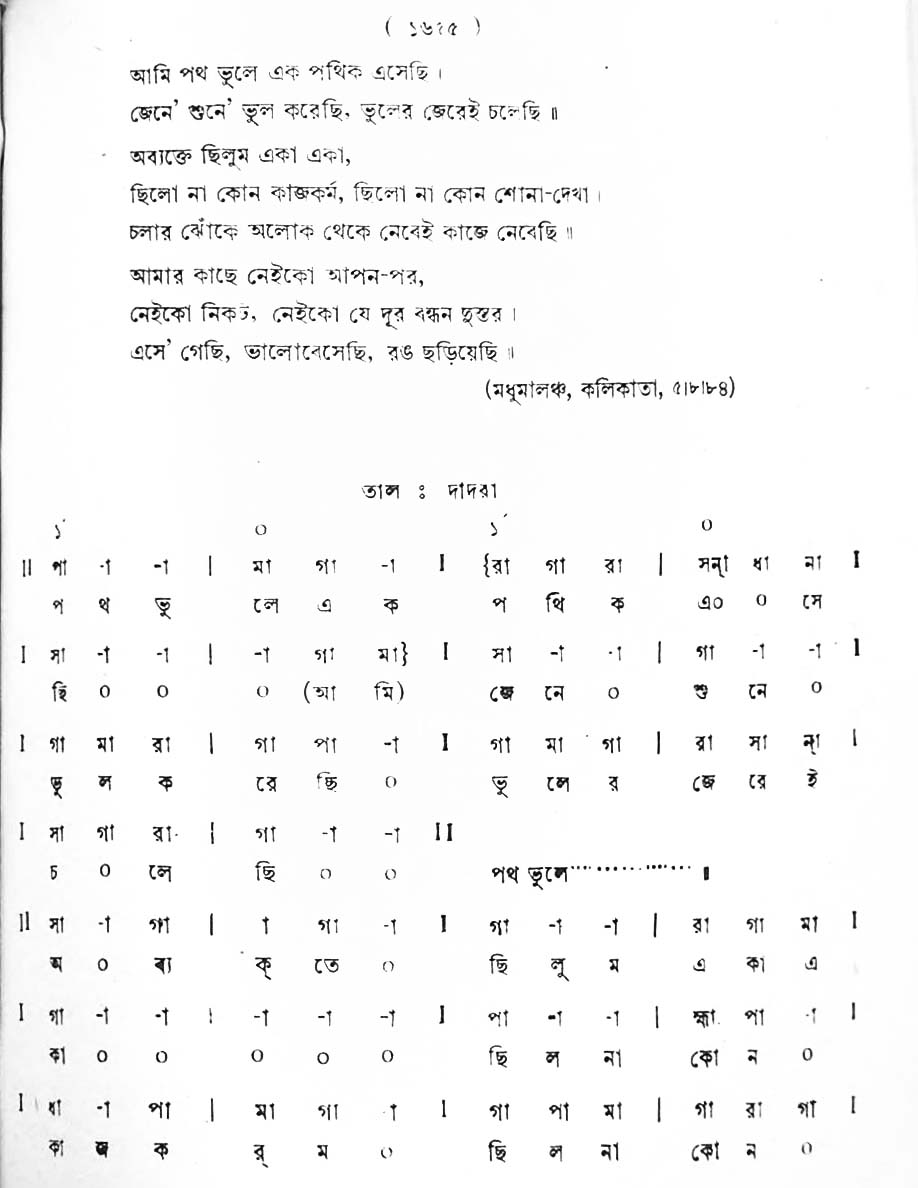 ( ১৬২৫ )
আমি পথ ভুলে এক পথিক এসেছি ।
জেনে' শুনে' ভুল করেছি, ভুলের জেরেই চলেছি ॥
অব্যক্তে ছিলুম একা একা,
ছিলো না কোন কাজকর্ম, ছিলো না কোন শোনা-দেখা ।
চলার ঝোঁকে অলোক থেকে নেবেই কাজে নেবেছি ॥
আমার কাছে নেইকো আপন-পর,
নেইকো নিকট, নেইকো যে দূর বন্ধন দুস্তর ।
এসে' গেছি, ভালোবেসেছি, রঙ ছড়িয়েছি ॥
(মধুমালঞ্চ, কলিকাতা, ৫।৮।৮৪)
তাল : দাদরা
১´ ০ ১´ ০
II পা -া -া | মা গা -া I {রা গা রা | সন্া ধা না I
প থ ভু লে এ ক প থি ক এ০ ০ সে
I সা -া -া | -া গা মা} I সা -া -া | গা -া -া I
ছি ০ ০ ০ (আ মি) জে নে ০ শু নে ০
I গা মা রা | গা পা -া I গা মা গা | রা সা ন্া I
ভু ল ক রে ছি ০ ভু লে র জে রে ই
I সা গা রা | গা -া -া II
চ ০ লে ছি ০ ০ পথ ভুলে··············॥
II সা -া গা | া গা -া I গা -া -া | রা গা মা I
অ ০ ব্য ক্ তে ০ ছি লু ম এ কা এ
I গা -া -া | -া -া -া I পা -া -া | হ্মা পা -া I
কা ০ ০ ০ ০ ০ ছি ল না কো ন ০
I ধা -া পা | মা গা -া I গা পা মা | গা রা গা I
কা জ ক র্ ম ০ ছি ল না কো ন ০